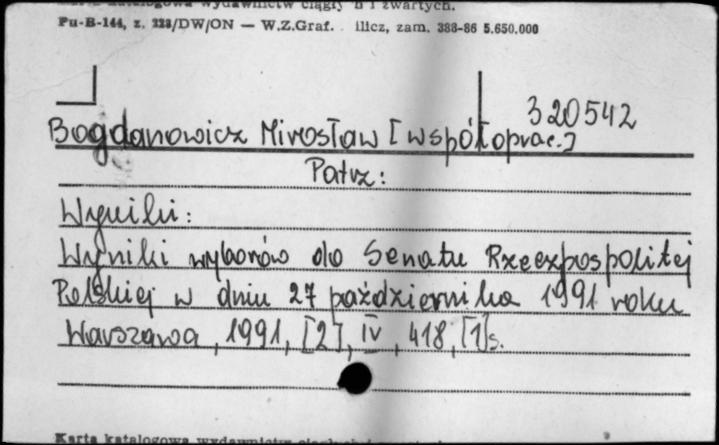 Karta katalogowa wydawnictw ciągły h i zwartych.
Pu-B-144, z. 223/DW/ON — W.Z.Graf. ilicz, zam. 388-86 5.650.000
320542
Bogdanowicz Mirosław [współoprac.]
Patrz:
Wyniki:
Wyniki wyborów do Senatu Rzeczpospolitej
Polskiej w dniu 27 października 1991 roku
Warszawa, 1991, [2], IV, 418, [1]s.
Karta katalogowa wydawnictw